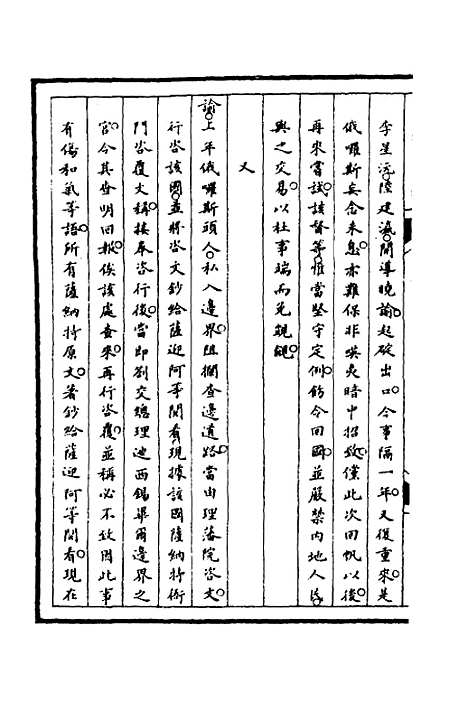 李星沅陸建瀛開導曉諭起碇出口今事隔一年又復重來是
俄囉斯妄念未息亦難保非暎夷暗中招致僅此次回帆以後
再來嘗試該督等惟當堅守定例飭令回國並嚴禁內地人民
與之交易以杜事端而免覬覦
又
諭上年俄囉斯頭人私入邊界阻攔查邊道路當由理藩院咨文
行咨該國並將咨文鈔給薩迎阿等閱看現據該國薩納特衙
門咨覆文稱接奉咨行後當即劄交總理迪西錫畢爾邊界之
官令其查明回報俟該處查來再行咨覆並稱必不致因此事
有傷和氣等語所有薩納特原文著鈔給薩迎阿等閱看現在